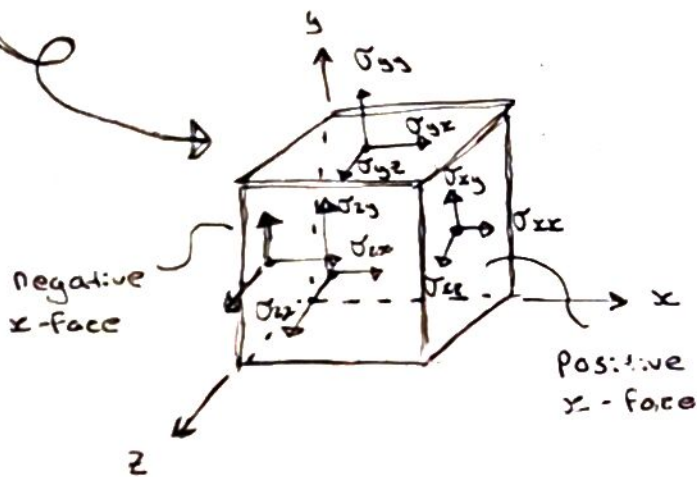 y
σyy
σyx
σyz
σxy
σxx
σxz
σzy
σzx
σzz
negative
x-face
x
Positive
x-face
z